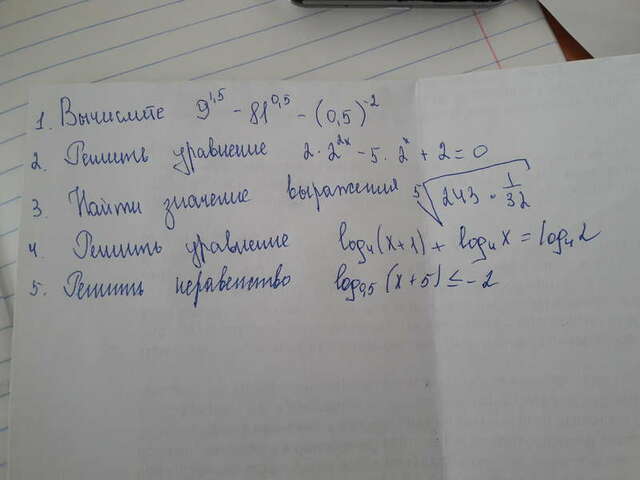 1. Вычислите 9^1,5 − 81^0,5 − (0,5)^-2
2. Решить уравнение 2·2^2x − 5·2^x + 2 = 0
3. Найти значение выражения ⁵√(243·1/32)
4. Решить уравнение log₄(x+1) + log₄x = log₄2
5. Решить неравенство log₀,₅(x+5) ≤ −2